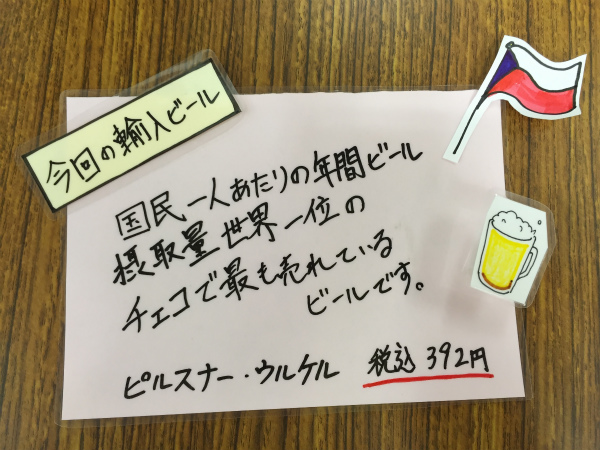 今回の輸入ビール
国民一人あたりの年間ビール
摂取量世界一位の
チェコで最も売れている
ビールです。
ピルスナー・ウルケル 税込392円